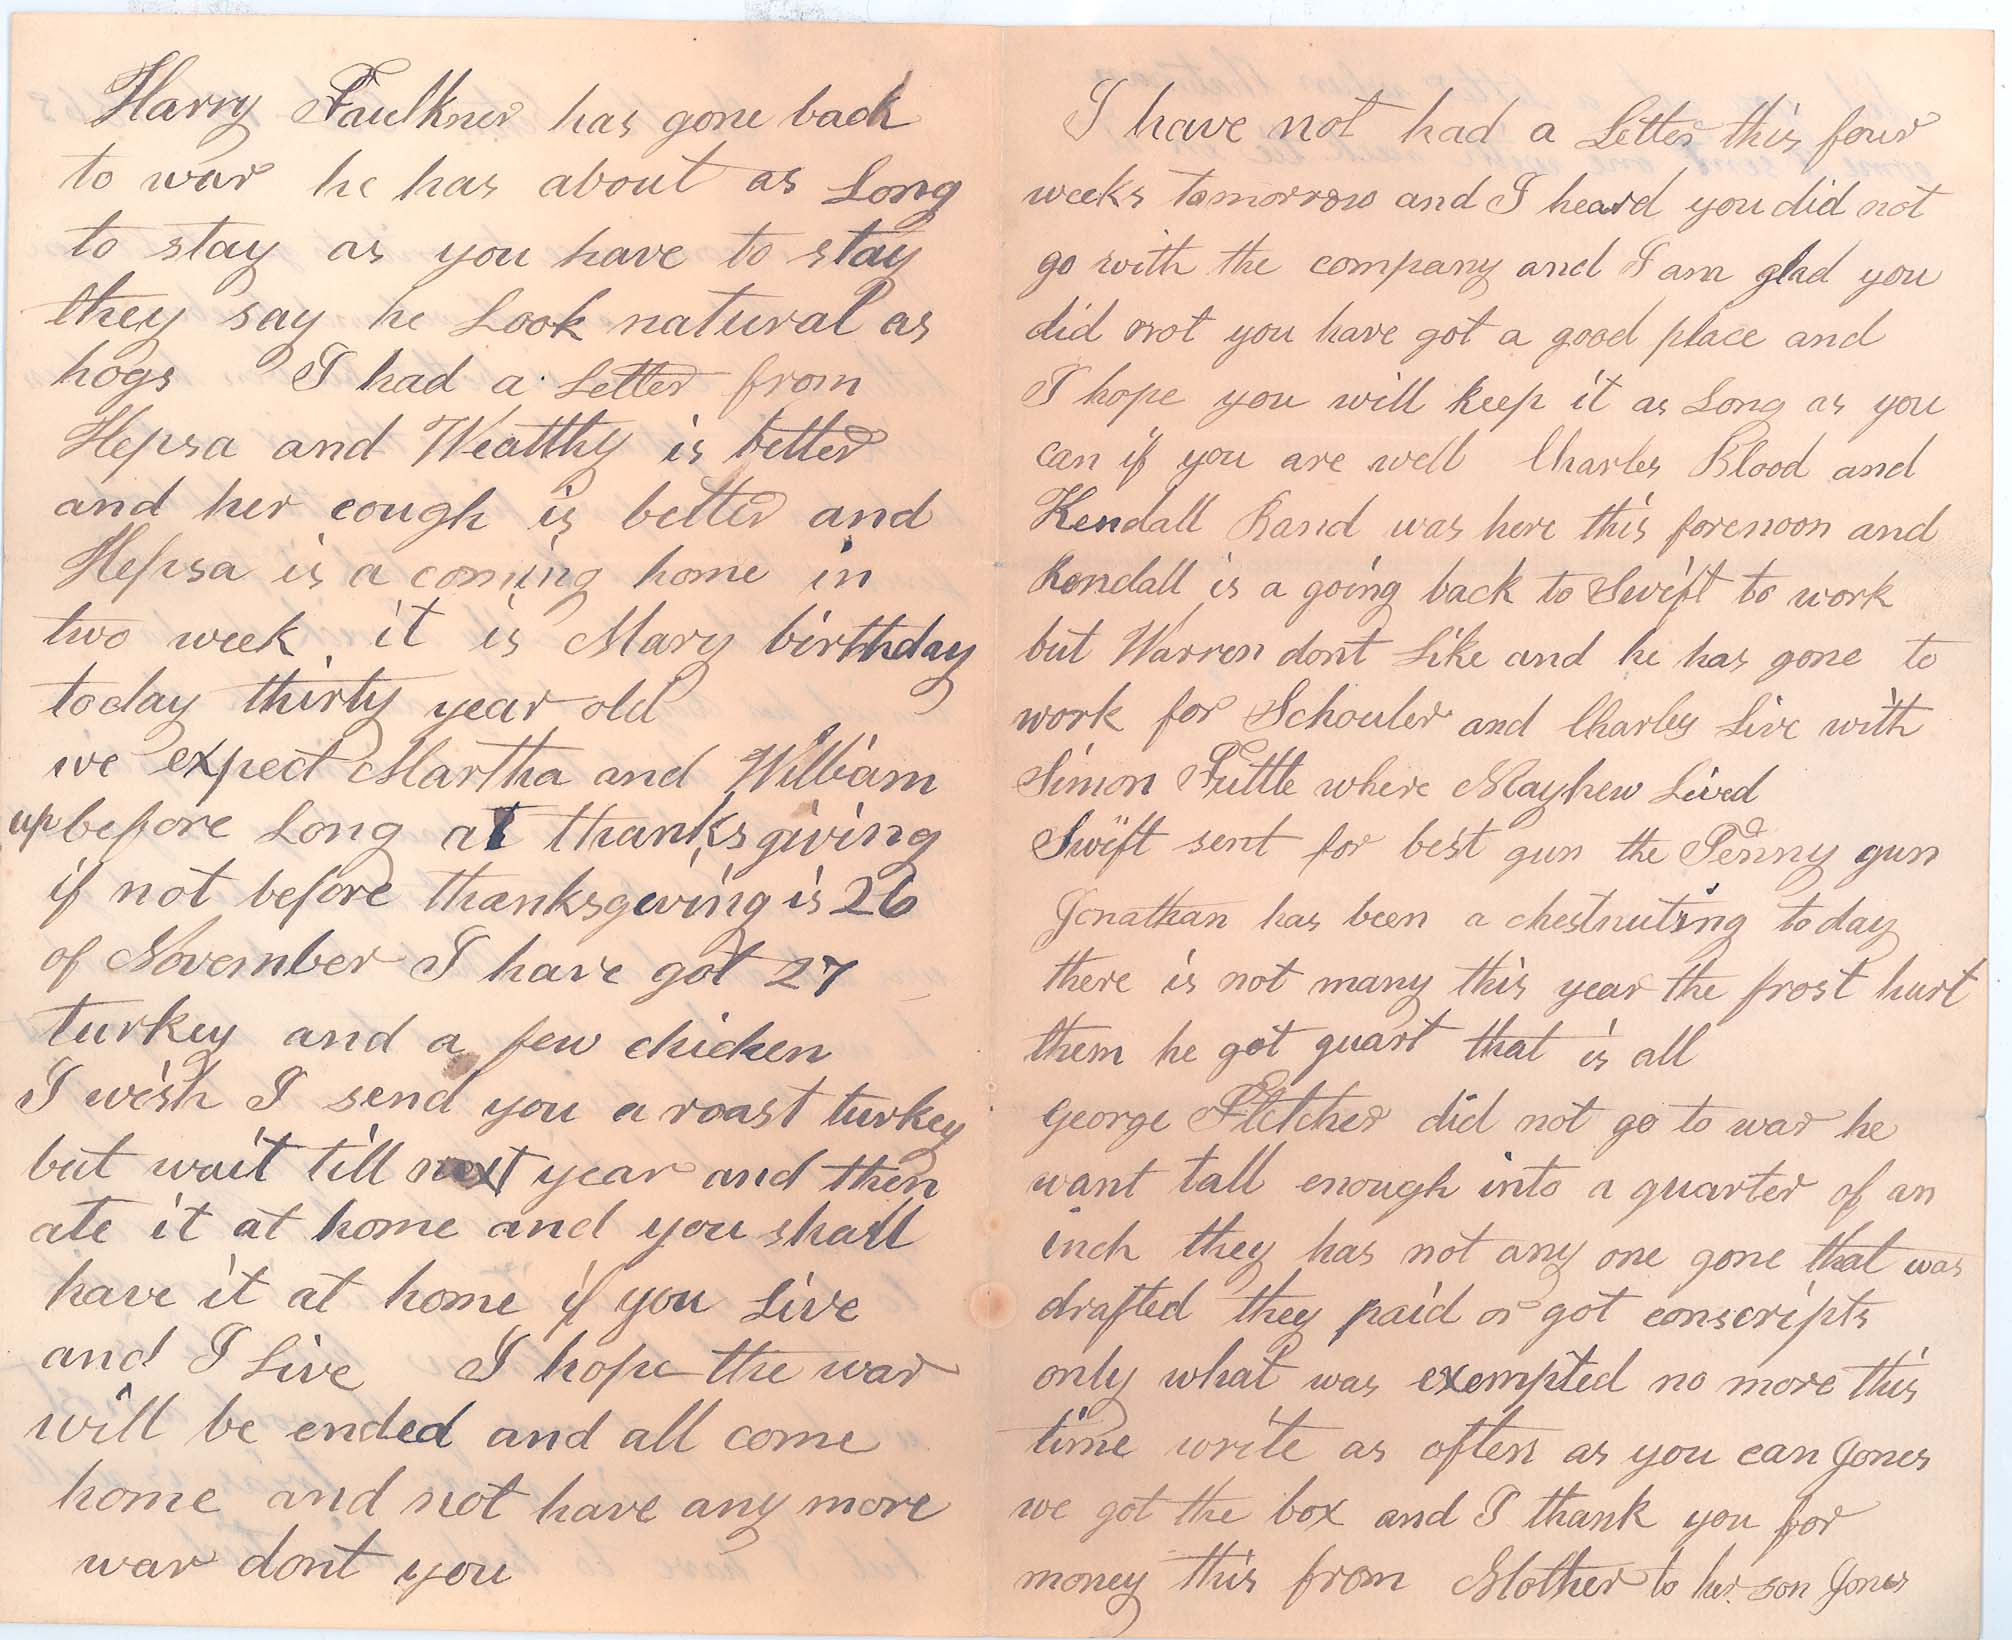 Harry Faulkner has gone back
to war he has about as Long
to stay as you have to stay
they say he Look natural as
hogs I had a Letter from
Hepsa and Wealthy is better
and her cough is better and
Hepsa is a coming home in
two week it is Mary birthday
today thirty year old
we expect Martha and William
up before Long at thanksgiving
if not before thanksgiving is 26
of November I have got 27
turkey and a few chicken
I wish I send you a roast turkey
but wait till next year and then
ate it at home and you shall
have it at home if you Live
and I Live I hope the war
will be ended and all come
home and not have any more
war dont you
I have not had a Letter this four
weeks tomorrow and I heard you did not
go with the company and I am glad you
did not you have got a good place and
I hope you will keep it as Long as you
can if you are well Charles Blood and
Kendall Rand was here this forenoon and
Kendall is a going back to Swift to work
but Warren dont Like and he has gone to
work for Schouler and Charles Live with
Simon Tuttle where Mayhew Lived
Swift sent for best gun the Penny gun
Jonathan has been a chestnuting today
there is not many this year the frost hurt
them he got quart that is all
George Fletcher did not go to war he
want tall enough into a quarter of an
inch they has not any one gone that was
drafted they paid or got conscripts
only what was exempted no more this
time write as often as you can Jones
we got the box and I thank you for
money this from Mother to her son Jones